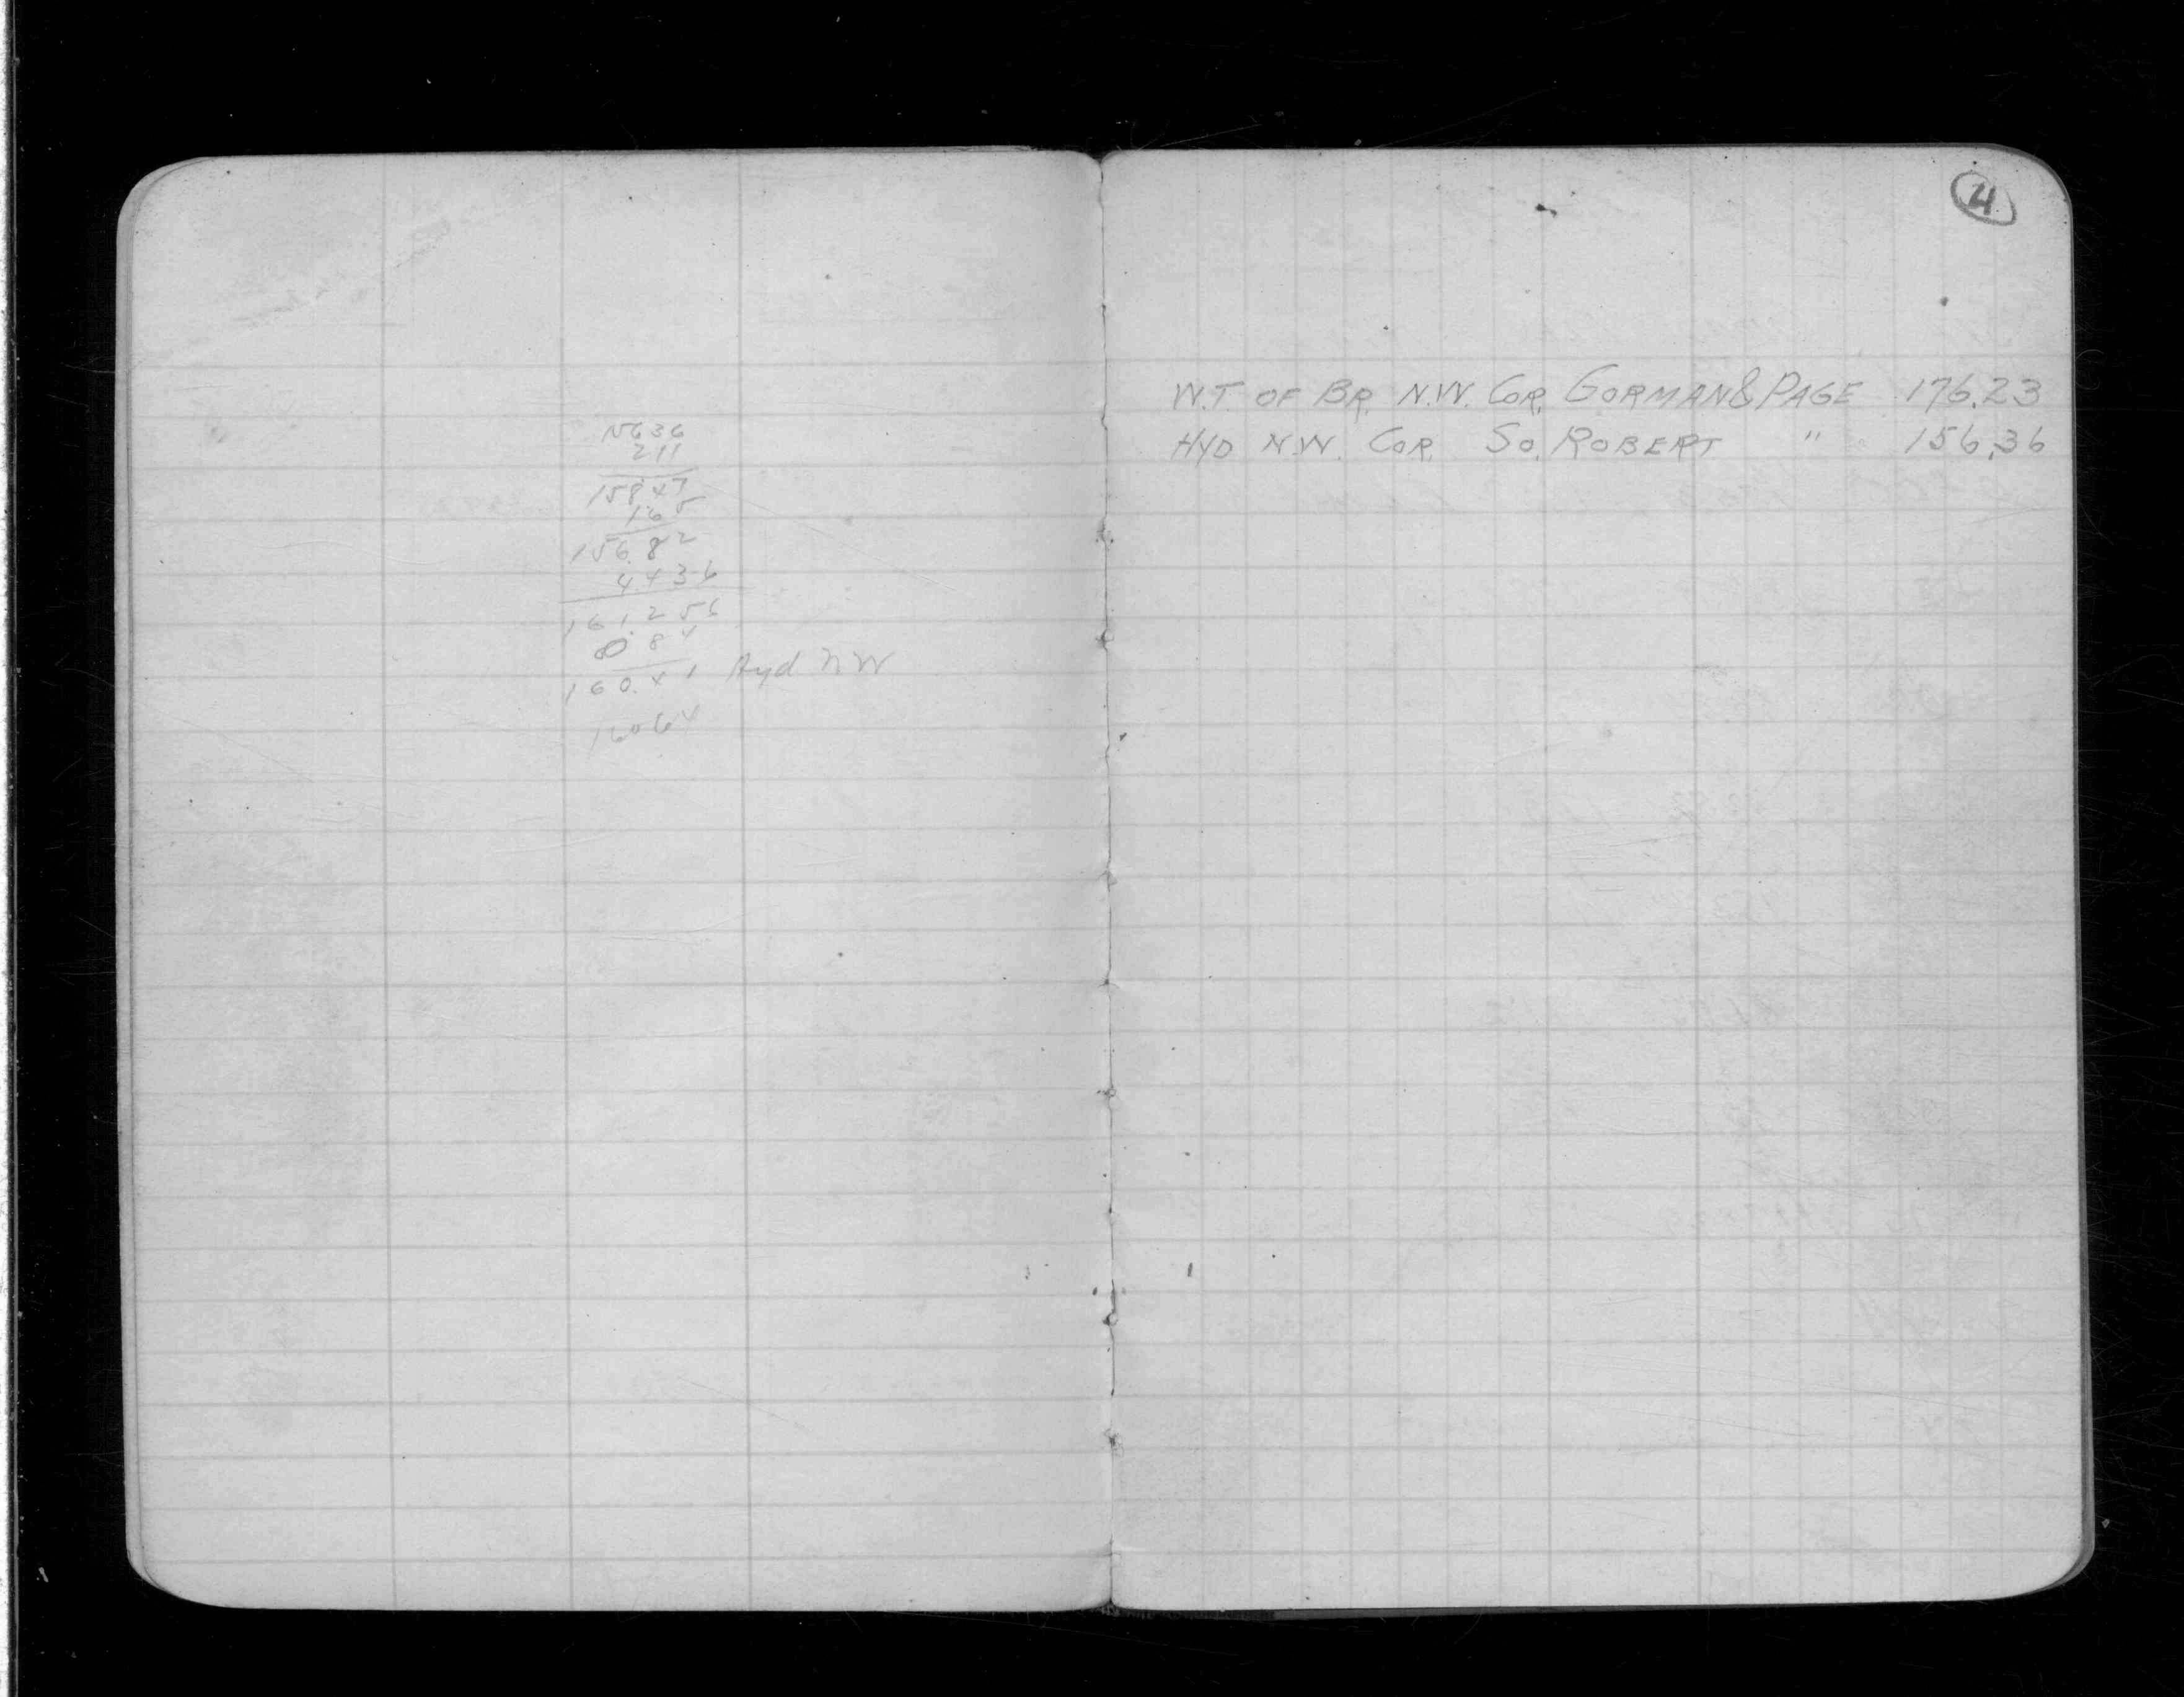 15636
211
158.47
1.65
156.82
4.436
161.256
0.84
160.41 Hyd NW
16064
21
W.T. OF BR. N.W. COR. GORMAN & PAGE 176.23
HYD N.W. COR. SO. ROBERT " 156.36